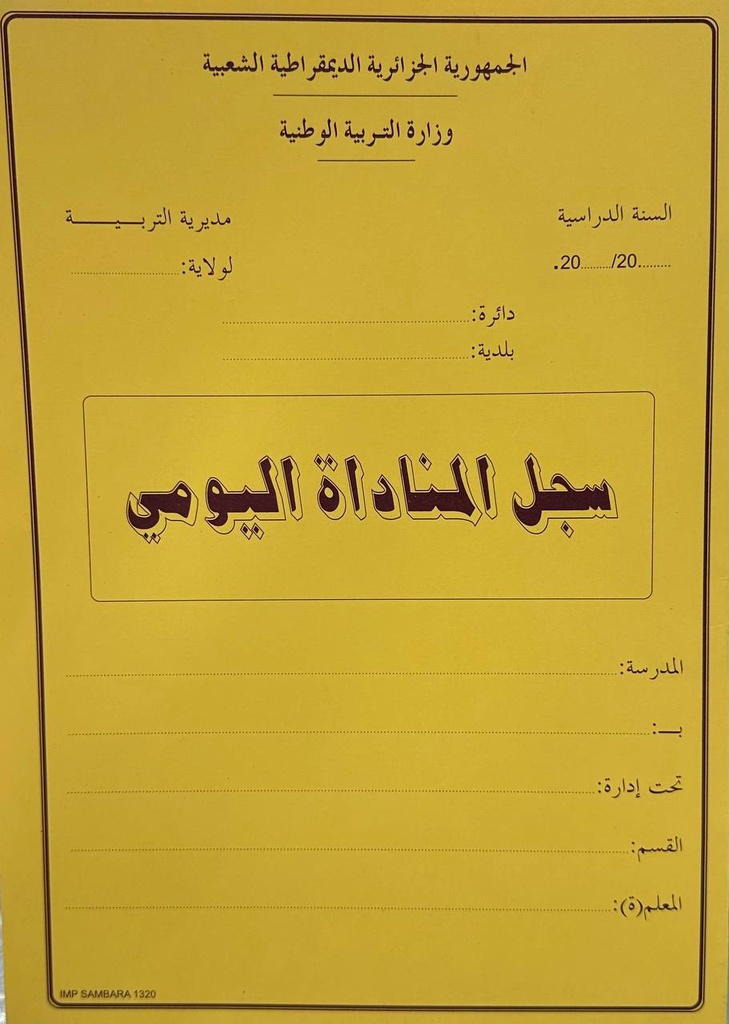 الجمهورية الجزائرية الديمقراطية الشعبية
وزارة التربية الوطنية
السنة الدراسية
مديرية التربـيـــــة
20......../20.........
لولاية:........................
دائرة:........................
بلدية:........................
سجل المناداة اليومي
المدرسة:........................
بـــ:........................
تحت إدارة:........................
القسم:........................
المعلم(ة):........................
IMP SAMBARA 1320